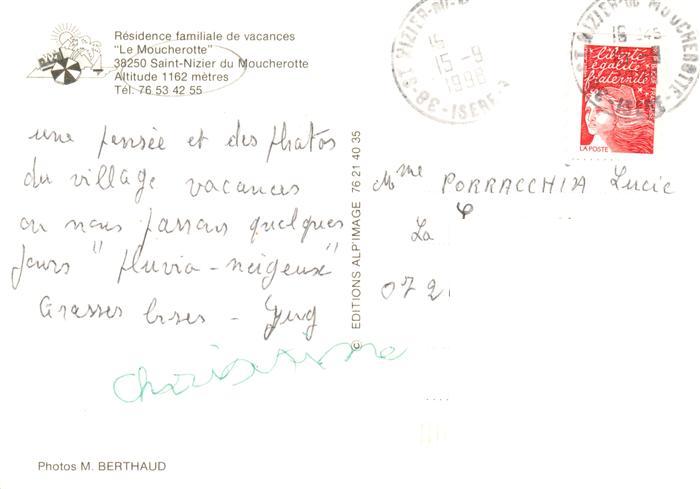 Résidence familiale de vacances
"Le Moucherotte"
38250 Saint-Nizier du Moucherotte
Altitude 1162 mètres
Tél. 76 53 42 55
ST NIZIER-DU-
15
15-9
1998
38-ISERE
ST NIZIER-DU MOUCHEROTTE
15
38-ISERE
liberté
égalité
fraternité
LA POSTE
une pensée et des photos
du village vacances
ou nous passons quelques
jours "pluvio-neigeux"
Grosses bises -
christiane
© EDITIONS ALP'IMAGE 76 21 40 35
Mme PORRACCHIA Lucie
La
07 2
Photos M. BERTHAUD